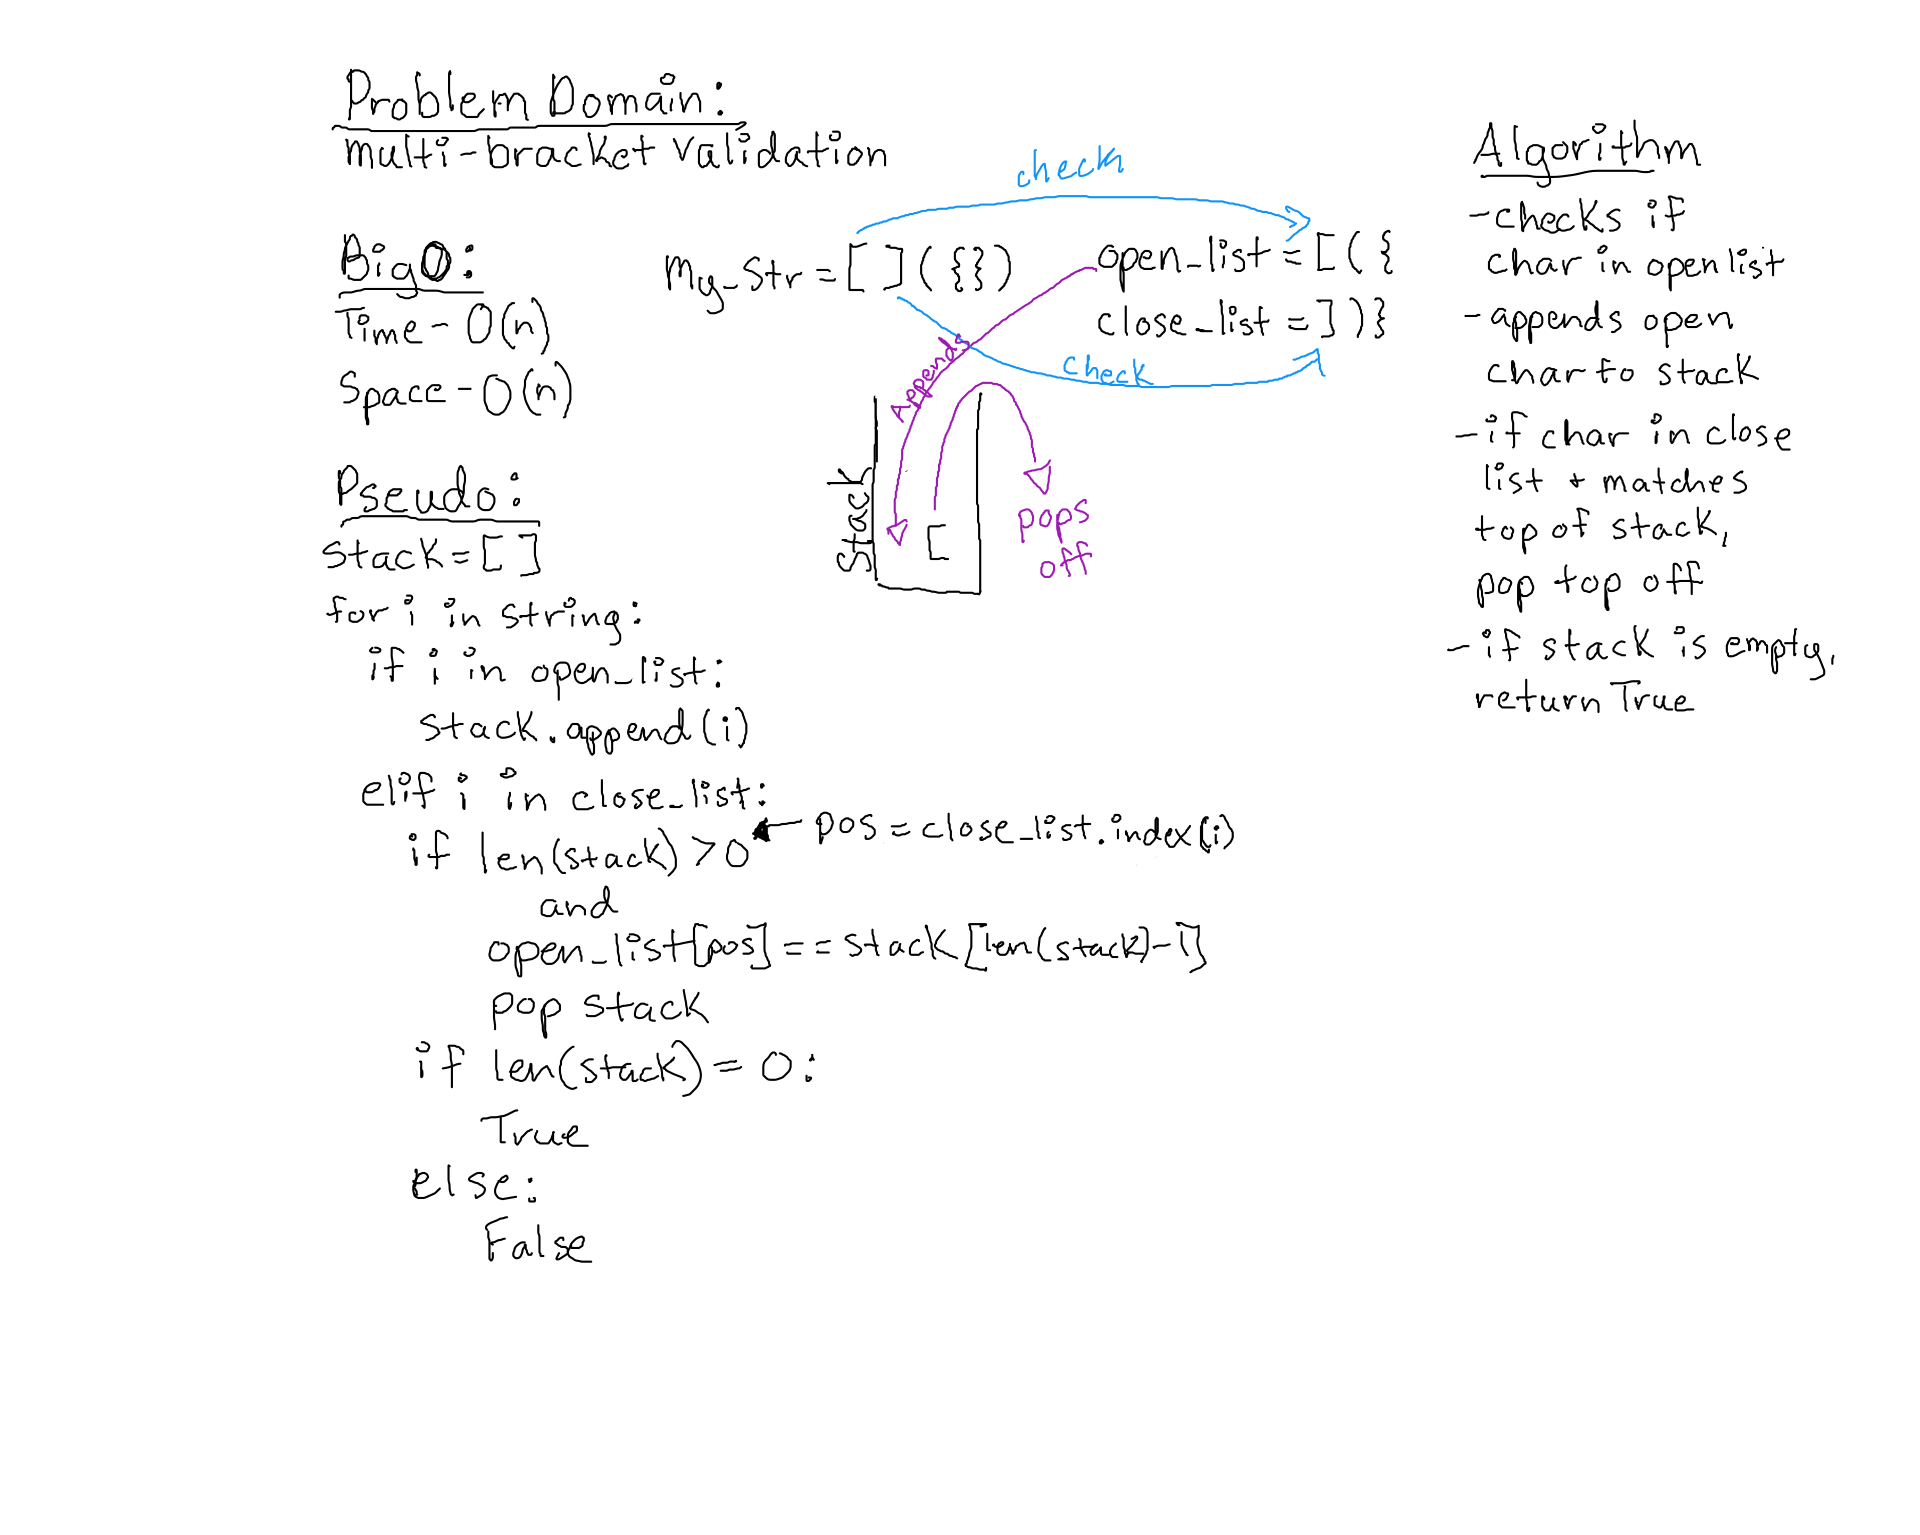 Problem Domain:
multi-bracket validation
Big O:
Time - O(n)
Space - O(n)
Pseudo:
stack = [ ]
for i in string:
if i in open_list:
stack.append(i)
elif i in close_list:
if len(stack) > 0
pos = close_list.index(i)
and
open_list[pos] == stack[len(stack)-1]
pop stack
if len(stack) = 0:
True
else:
False
check
My_Str = [ ] ( { } )
open_list = [ ( {
close_list = ] ) }
check
Appends
Stack
[
pops
off
Algorithm
- checks if
char in open list
- appends open
char to stack
- if char in close
list + matches
top of stack,
pop top off
- if stack is empty,
return True